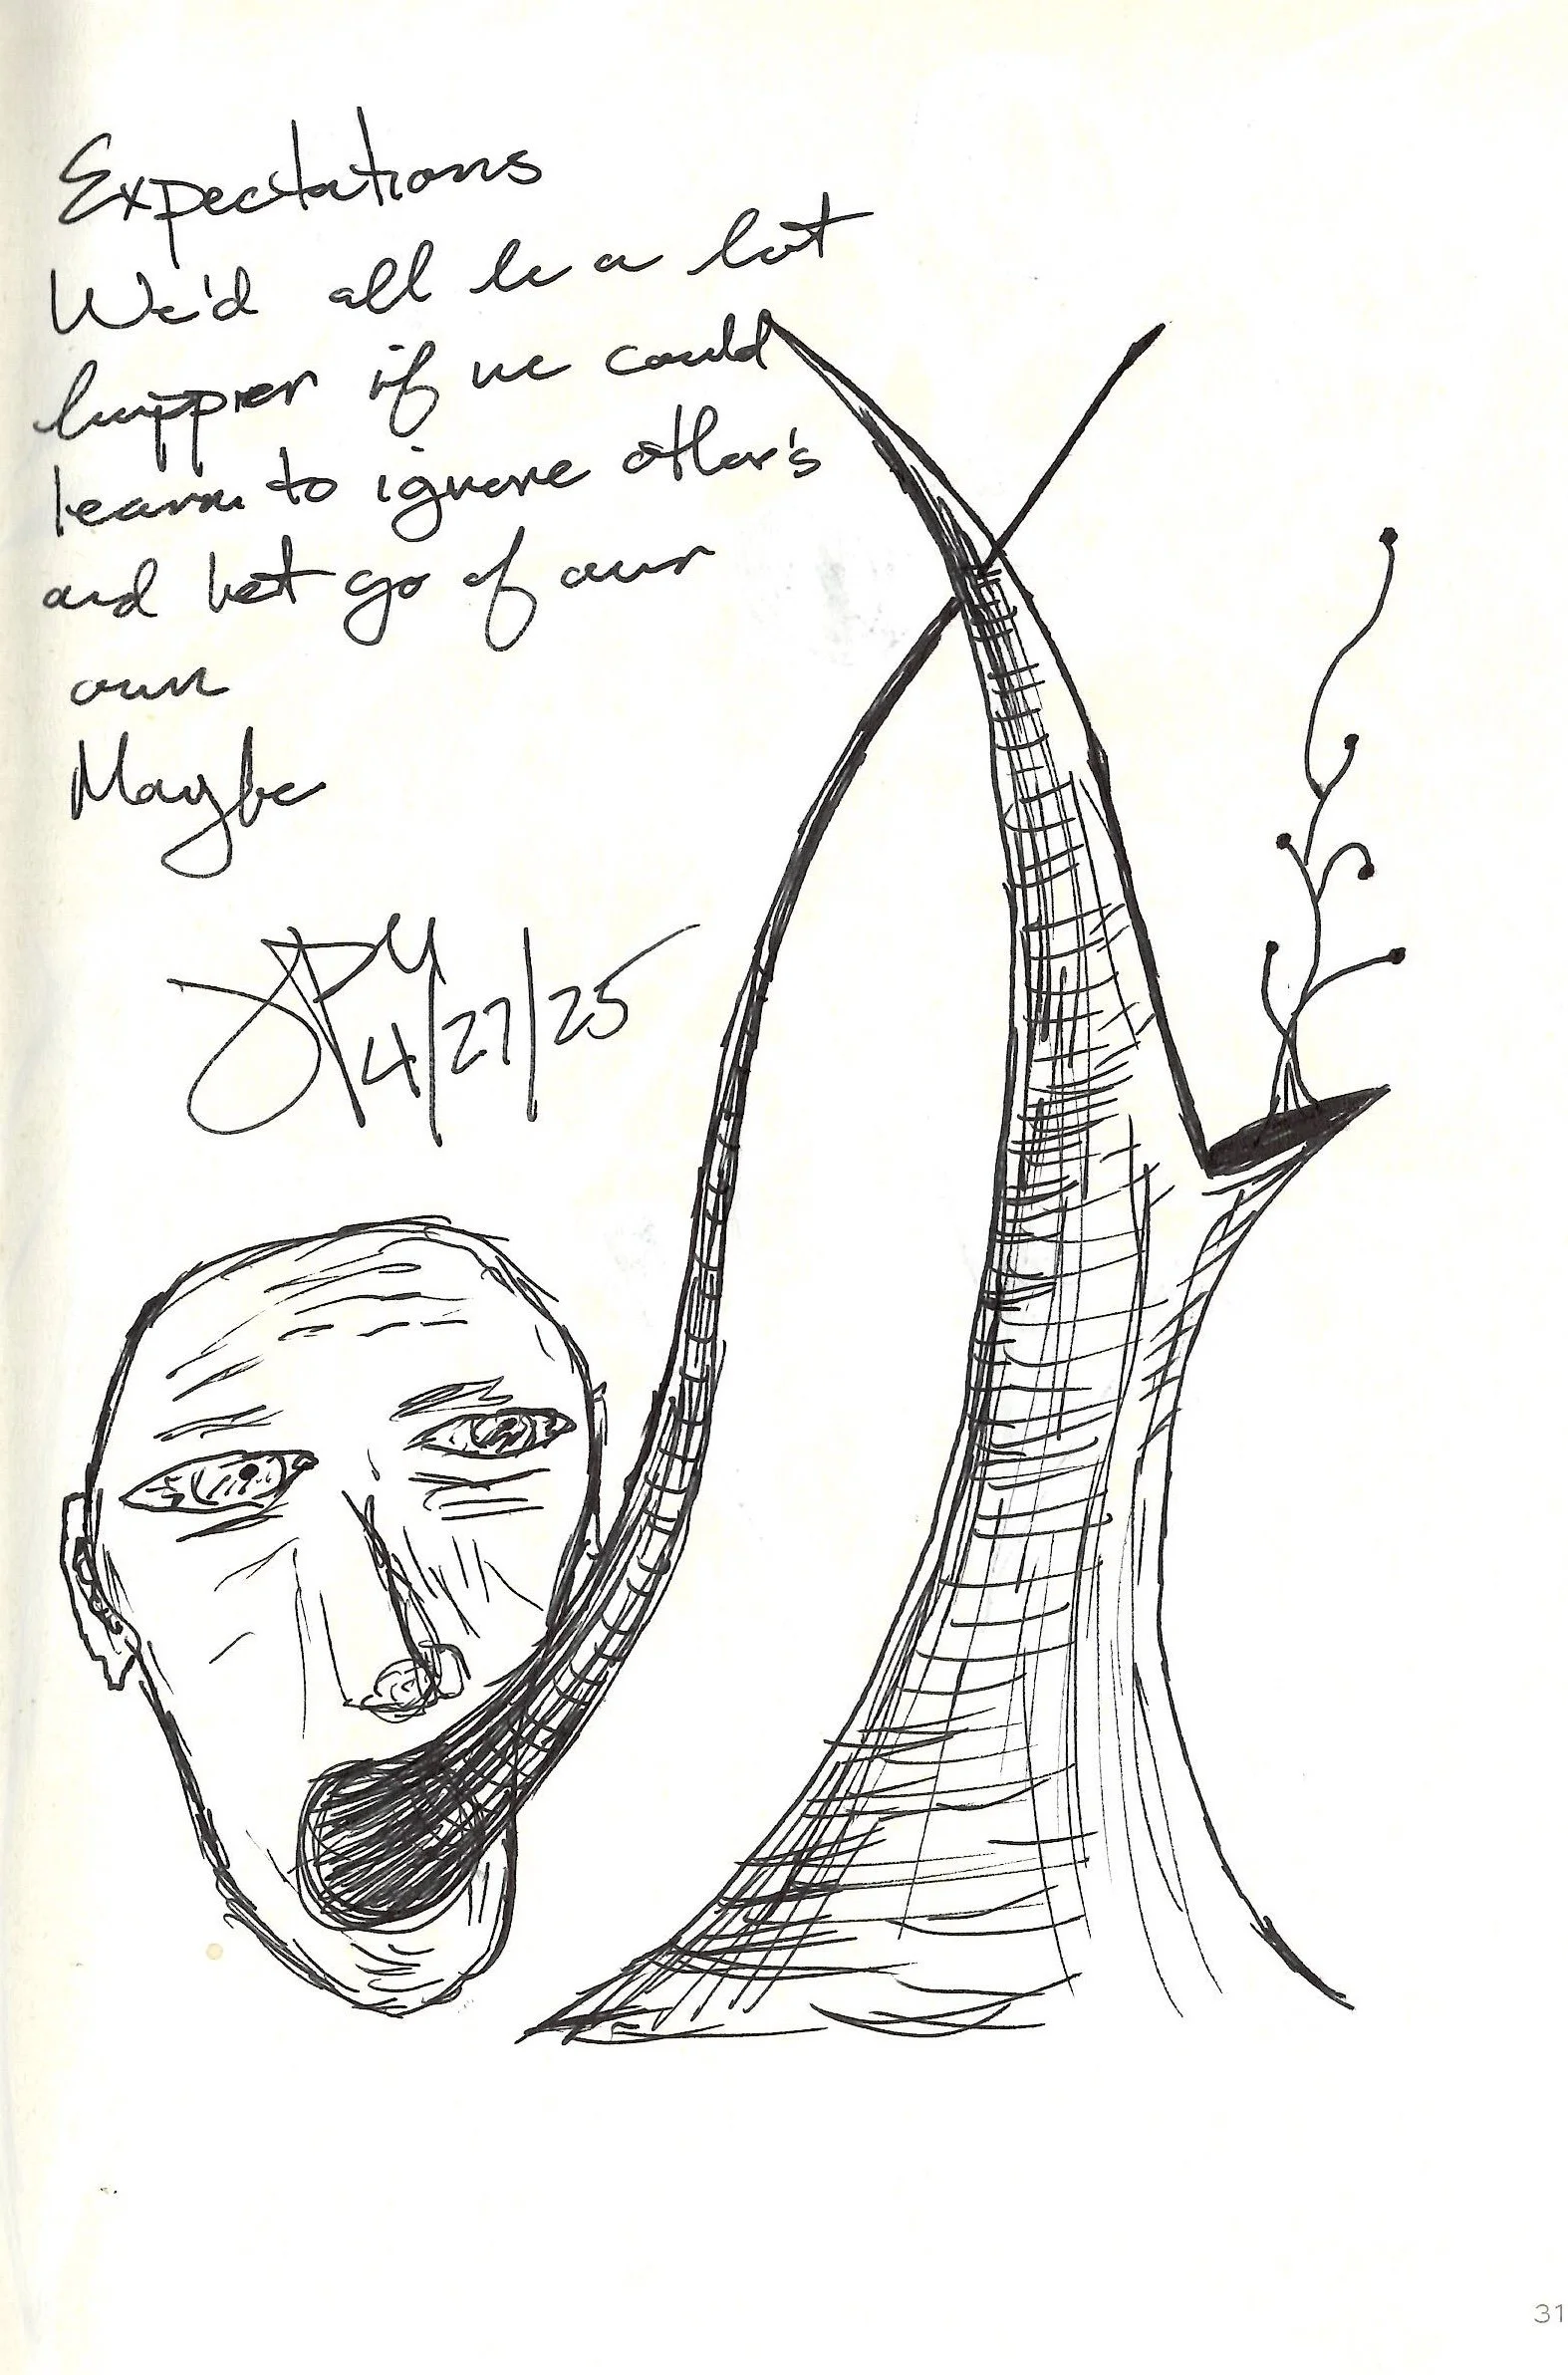 Expectations
We'd all be a lot
happier if we could
learn to ignore other's
and let go of our
own
Maybe
JPY
4/27/25
31